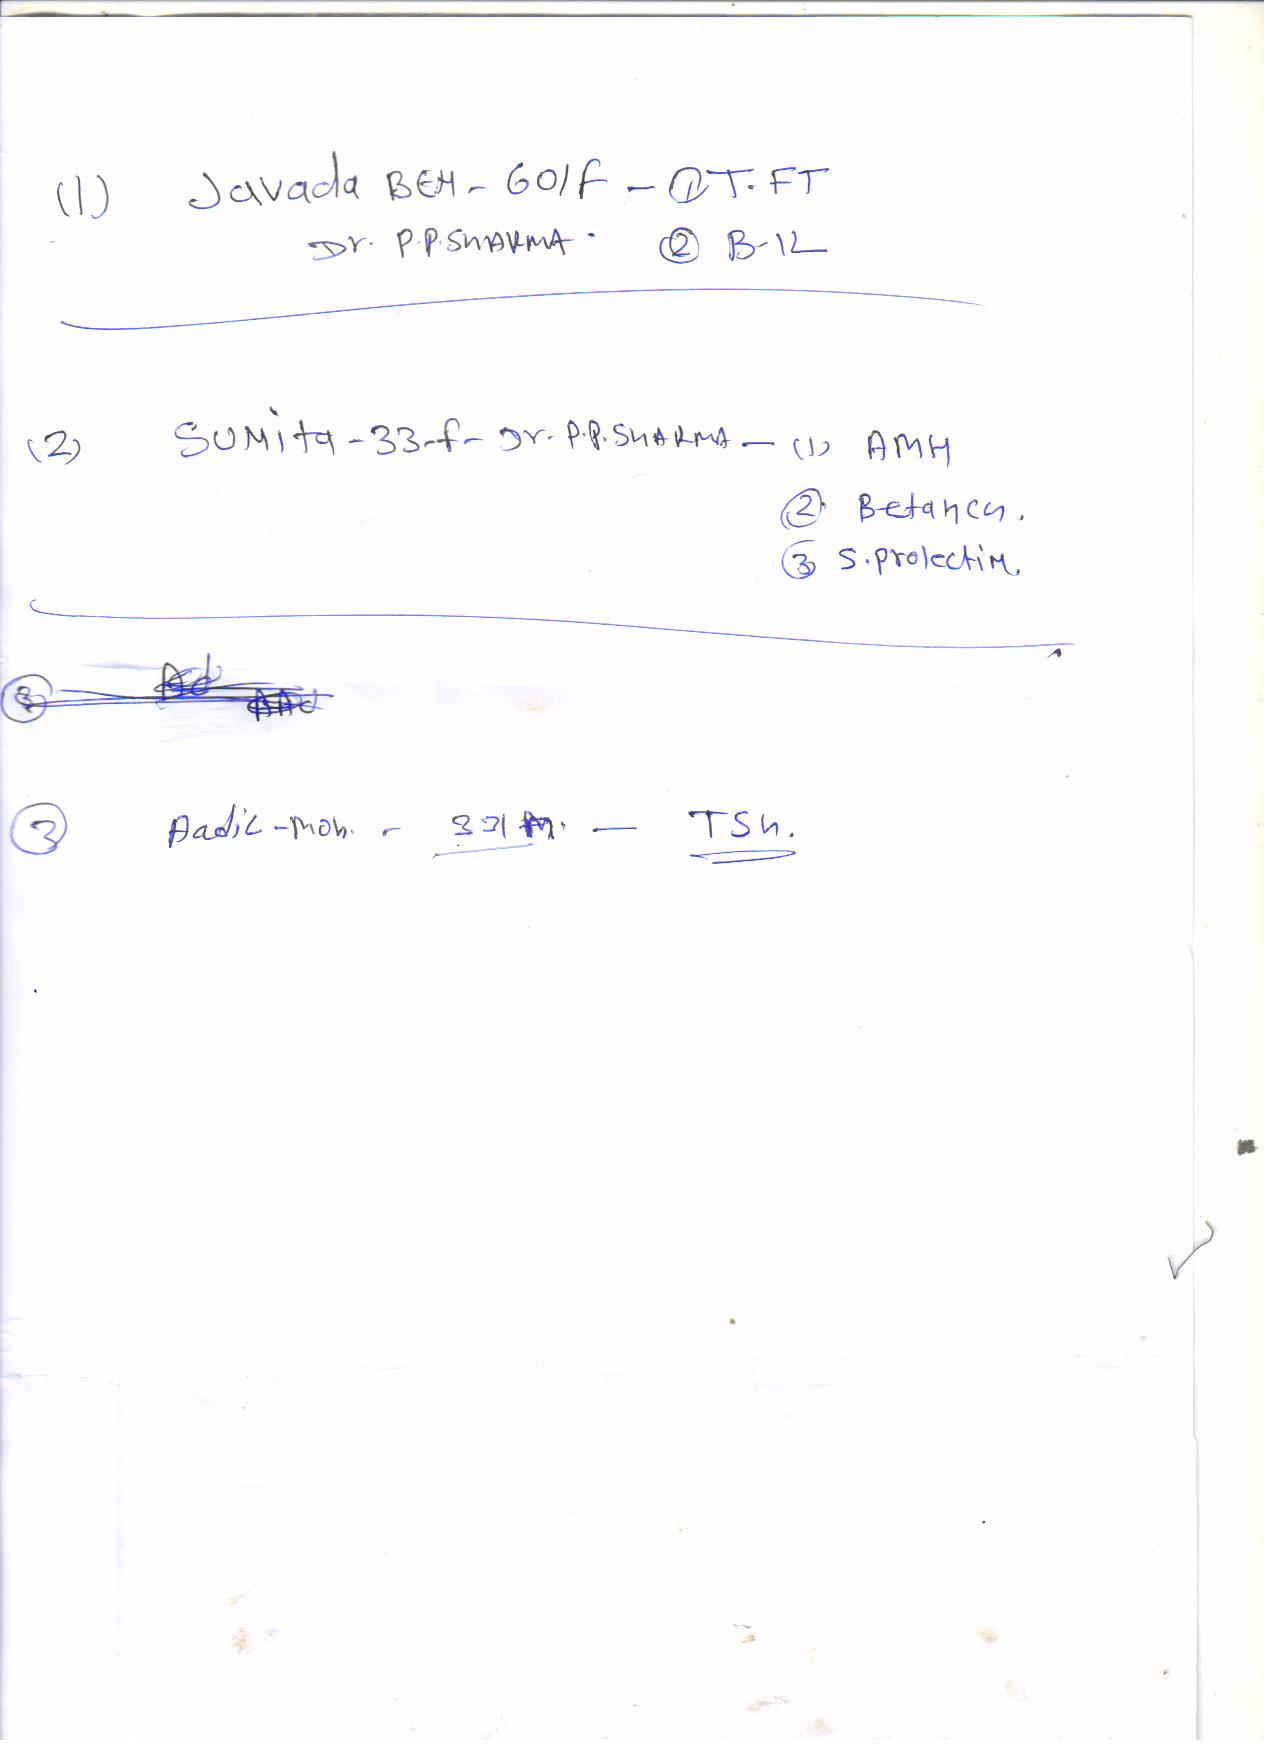 (1) Javada BEM - 60/F - ① T.FT
Dr. P.P.SHARMA. ② B-12
(2) SUMita - 33-f - Dr. P.P.SHARMA - (1) AMH
② Betahcg.
③ S.prolectin.
③ Aadil - Moh. - M. - TSh.